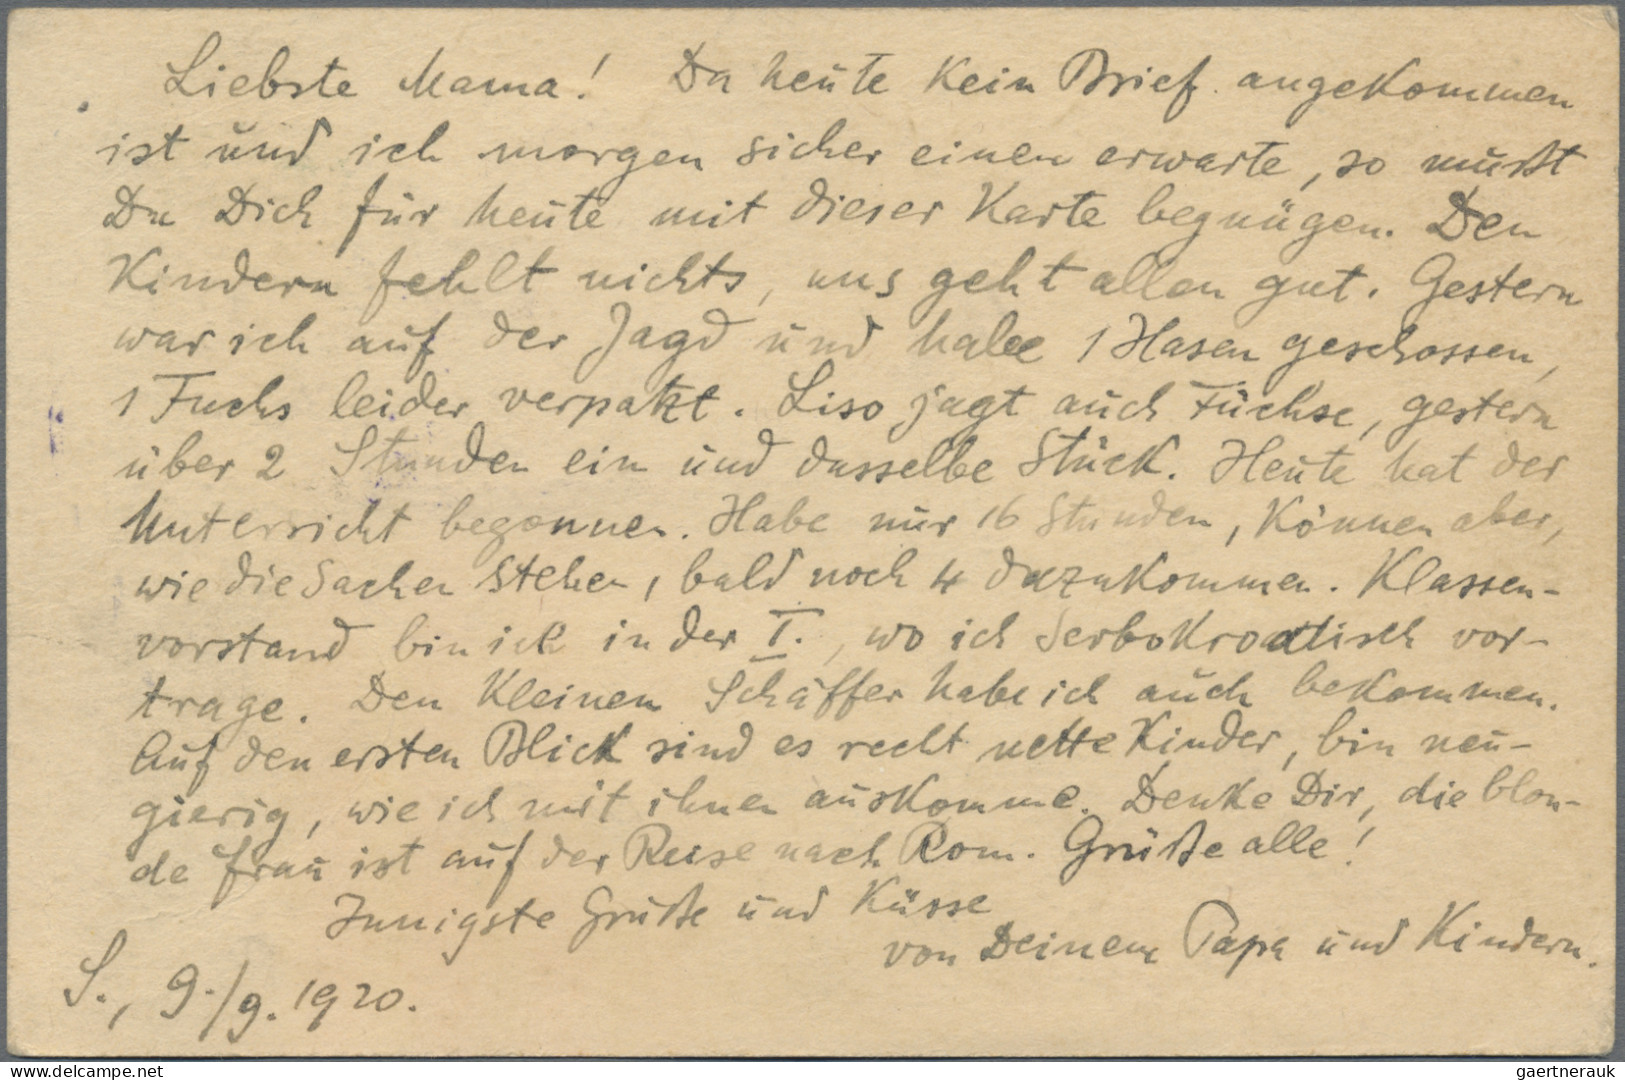 Liebste Mama! Da heute Kein Brief angekommen
ist und ich morgen sicher einen erwarte, so mußt
Du Dich für heute mit dieser Karte begnügen. Den
Kindern fehlt nichts, uns geht allen gut. Gestern
war ich auf der Jagd und habe 1 Hasen geschossen,
1 Fuchs leider verpatzt. Liso jagt auch Füchse, gestern
über 2 Stunden ein und dasselbe Stück. Heute hat der
Unterricht begonnen. Habe nur 16 Stunden, Können aber,
wie die Sachen stehen, bald noch 4 dazukommen. Klassen-
vorstand bin ich in der I., wo ich Serbokroatisch vor-
trage. Den Kleinen Schäffer habe ich auch bekommen.
Auf den ersten Blick sind es recht nette Kinder, bin neu-
gierig, wie ich mit ihnen auskomme. Denke Dir, die blon-
de Frau ist auf der Reise nach Rom. Grüße alle!
Innigste Grüße und Küsse
von Deinem Papa und Kindern.
S., 9./9. 1920.
www.delcampe.net
gaertnerauk